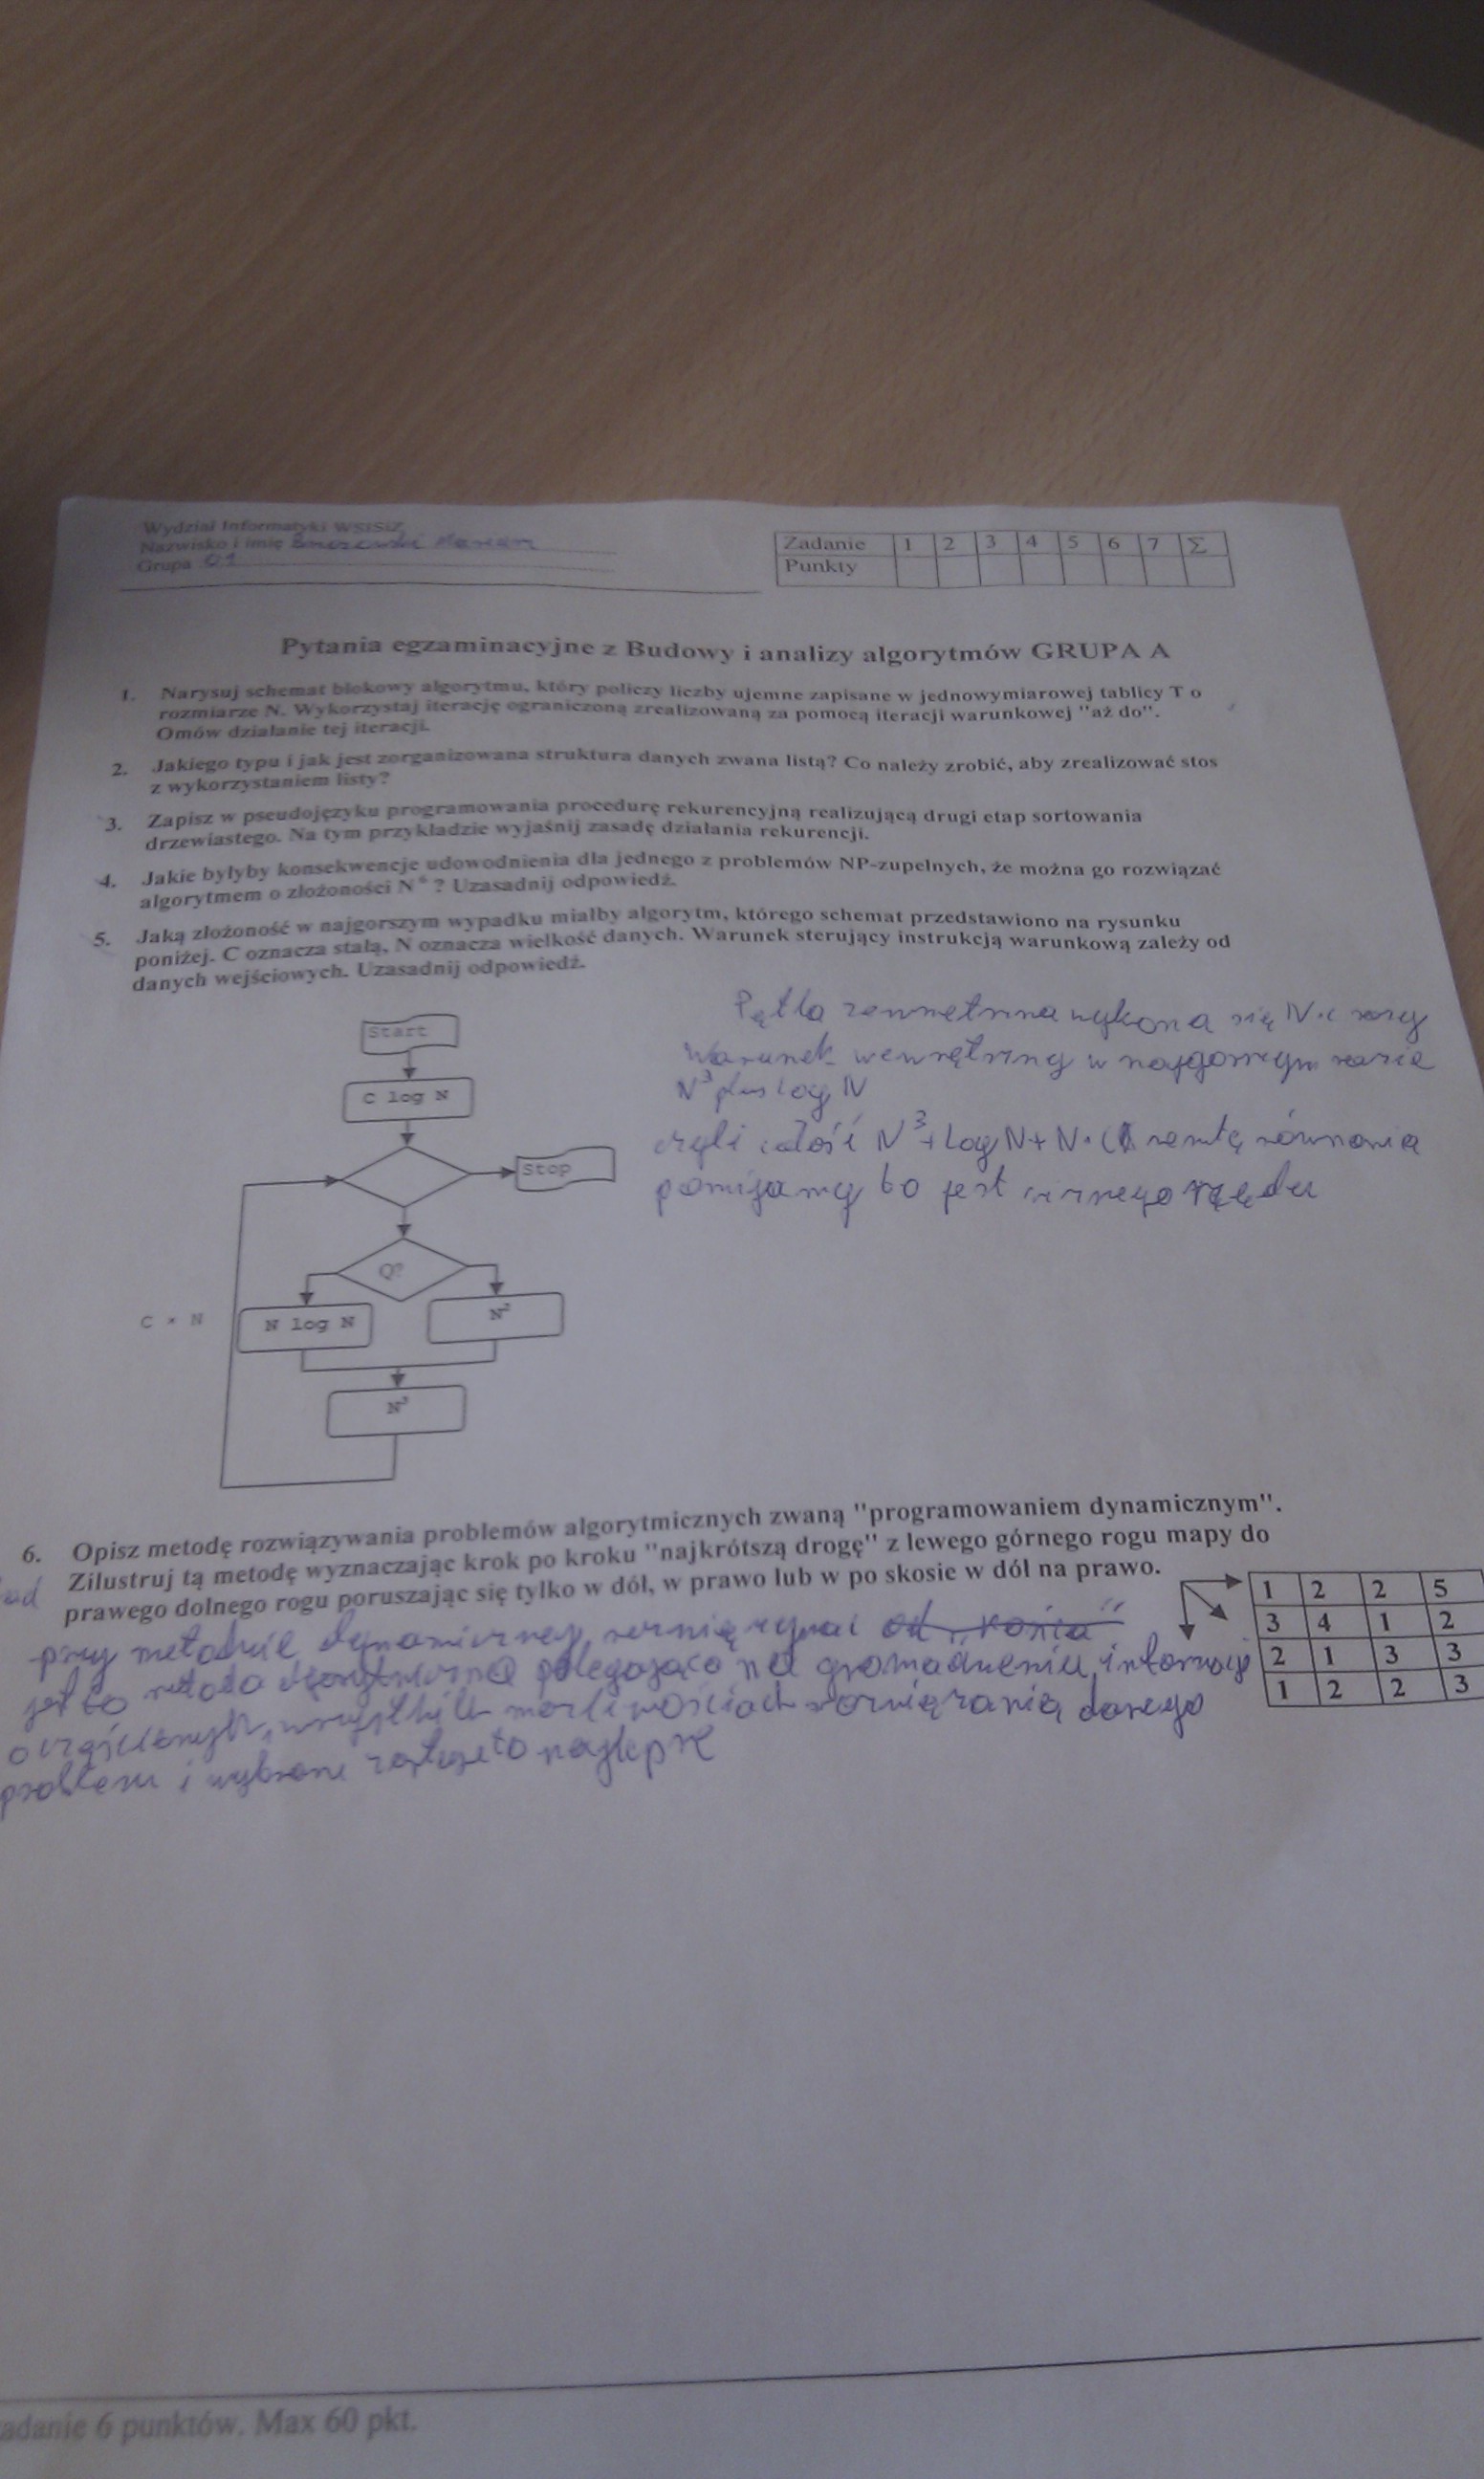 Wydział Informatyki WSISiZ
Nazwisko i imię
Grupa 01
Zadanie 1 2 3 4 5 6 7 Σ
Punkty
Pytania egzaminacyjne z Budowy i analizy algorytmów GRUPA A
1. Narysuj schemat blokowy algorytmu, który policzy liczby ujemne zapisane w jednowymiarowej tablicy T o
rozmiarze N. Wykorzystaj iterację ograniczoną zrealizowaną za pomocą iteracji warunkowej "aż do".
Omów działanie tej iteracji.
2. Jakiego typu i jak jest zorganizowana struktura danych zwana listą? Co należy zrobić, aby zrealizować stos
z wykorzystaniem listy?
3. Zapisz w pseudojęzyku programowania procedurę rekurencyjną realizującą drugi etap sortowania
drzewiastego. Na tym przykładzie wyjaśnij zasadę działania rekurencji.
4. Jakie byłyby konsekwencje udowodnienia dla jednego z problemów NP-zupełnych, że można go rozwiązać
algorytmem o złożoności N ? Uzasadnij odpowiedź.
5. Jaką złożoność w najgorszym wypadku miałby algorytm, którego schemat przedstawiono na rysunku
poniżej. C oznacza stałą, N oznacza wielkość danych. Warunek sterujący instrukcją warunkową zależy od
danych wejściowych. Uzasadnij odpowiedź.
Pętla zewnętrzna wykona się N·c razy
Warunek wewnętrzny w najgorszym razie
N³ plus log N
czyli całość N³ + Log N + N · C resztę równania
pomijamy bo jest rzędu
Start
C log N
Stop
Q?
C * N
N log N
N²
N³
6. Opisz metodę rozwiązywania problemów algorytmicznych zwaną "programowaniem dynamicznym".
Zilustruj tą metodę wyznaczając krok po kroku "najkrótszą drogę" z lewego górnego rogu mapy do
prawego dolnego rogu poruszając się tylko w dół, w prawo lub w po skosie w dół na prawo.
1 2 2 5
3 4 1 2
2 1 3 3
1 2 2 3
od
przy metodzie dynamicznej od "końca"
jest to metoda polegająca na gromadzeniu informacji
o wszystkich możliwościach rozwiązania danego
problemu i najlepsze
adanie 6 punktów. Max 60 pkt.